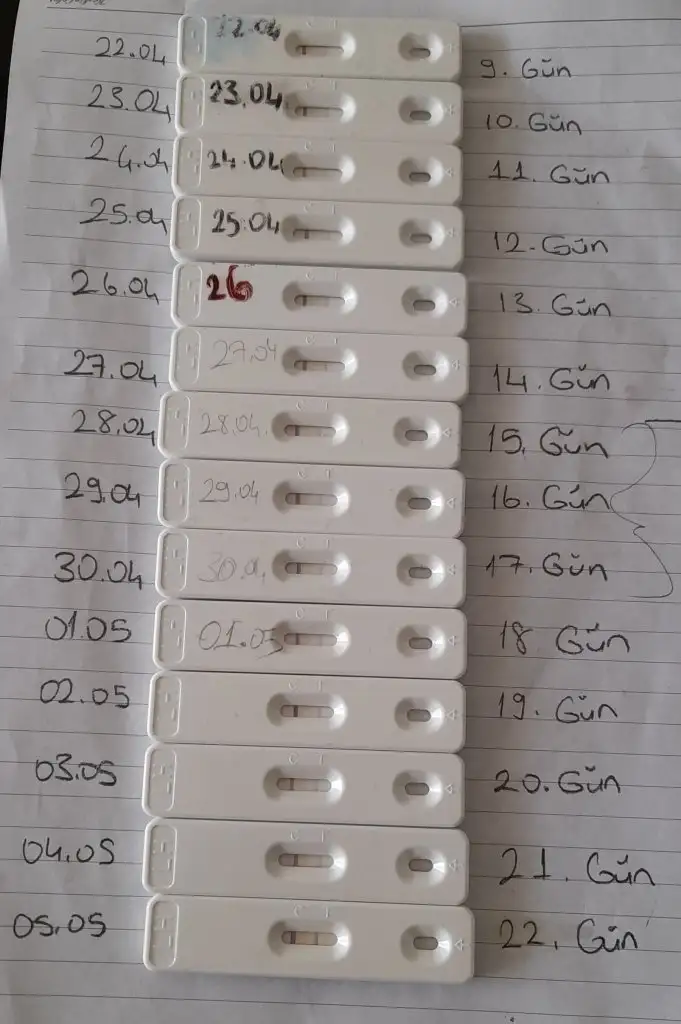 22.04 22.04 9. Gün
23.04 23.04 10. Gün
24.04 24.04 11. Gün
25.04 25.04 12. Gün
26.04 26 13. Gün
27.04 27.04 14. Gün
28.04 28.04 15. Gün
29.04 29.04 16. Gün
30.04 30.04 17. Gün
01.05 01.05 18 Gün
02.05 19. Gün
03.05 20. Gün
04.05 21. Gün
05.05 22. Gün